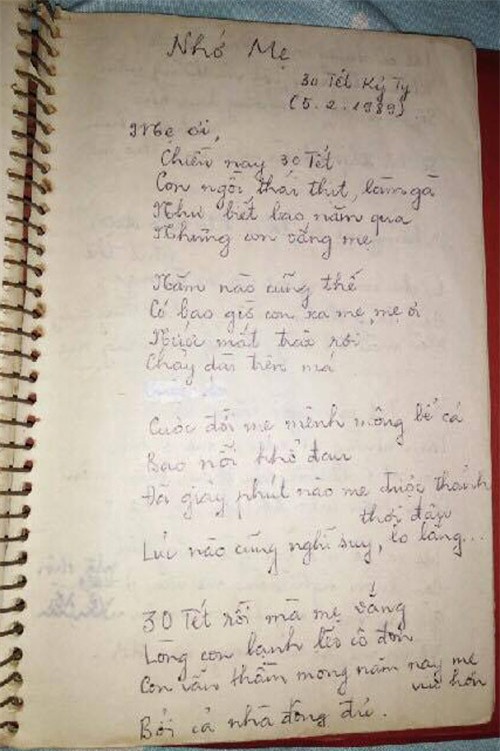 Nhớ Mẹ
30 Tết Kỷ Tỵ
(5.2.1989)
Mẹ ơi,
Chiều nay 30 Tết
Con ngồi thái thịt, làm gà
Như biết bao năm qua
Nhưng con vắng mẹ
Năm nào cũng thế
Có bao giờ con xa mẹ, mẹ ơi
Nước mắt trào rơi
Chảy dài trên má
Cuộc đời mẹ mênh mông bể cả
Bao nỗi khổ đau
Đã giây phút nào mẹ được thảnh
thơi đâu
Lúc nào cũng nghĩ suy, lo lắng...
30 Tết rồi mà mẹ vắng
Lòng con lạnh lẽo cô đơn
Con vẫn thầm mong năm nay mẹ
vui hơn
Bởi cả nhà đông đủ.